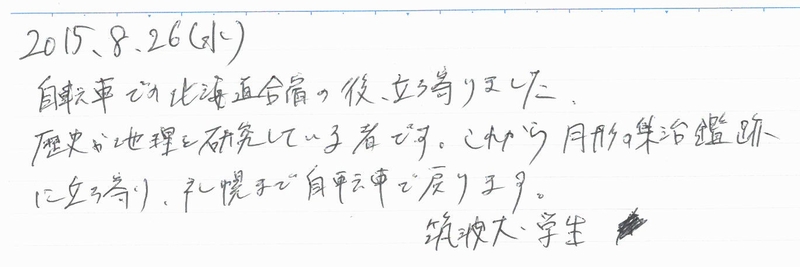 2015、8、26(水)
自転車での北海道合宿の後、立ち寄りました、
歴史が地理を研究している者です。これから月形の集治鑑跡
に立ち寄り、札幌まで自転車で戻ります。
筑波大・学生